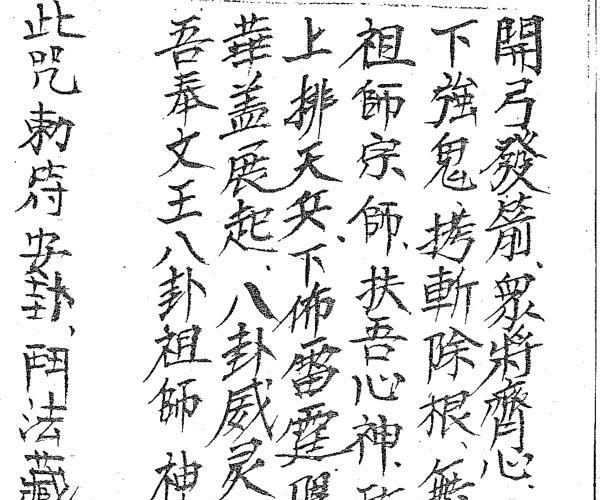 開弓發箭、眾將齊心、
下強鬼、拷斬除根、無
祖師宗師、扶吾心神、
上排天兵、下佈雷霆
華盖展起、八卦威灵
吾奉文王八卦祖師神
此咒勅符安卦、鬥法藏